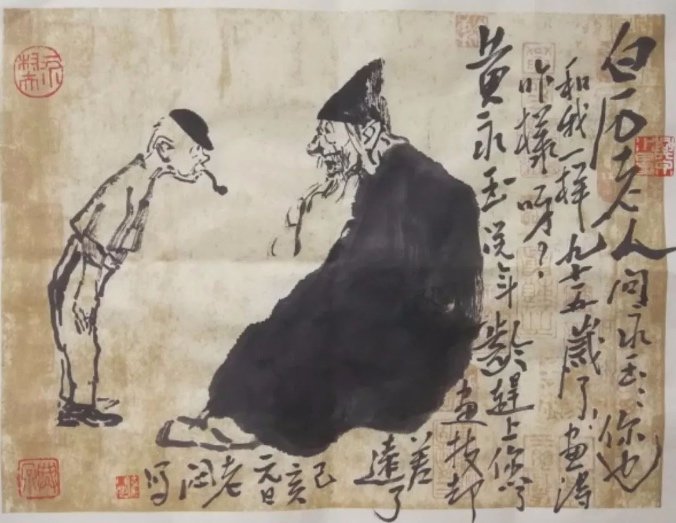 白石老人问永玉:你也
和我一样九十五岁了,画得
咋样呀?
黄永玉说年龄赶上你了
画技却
差
远了
己亥
元日
老沍
写